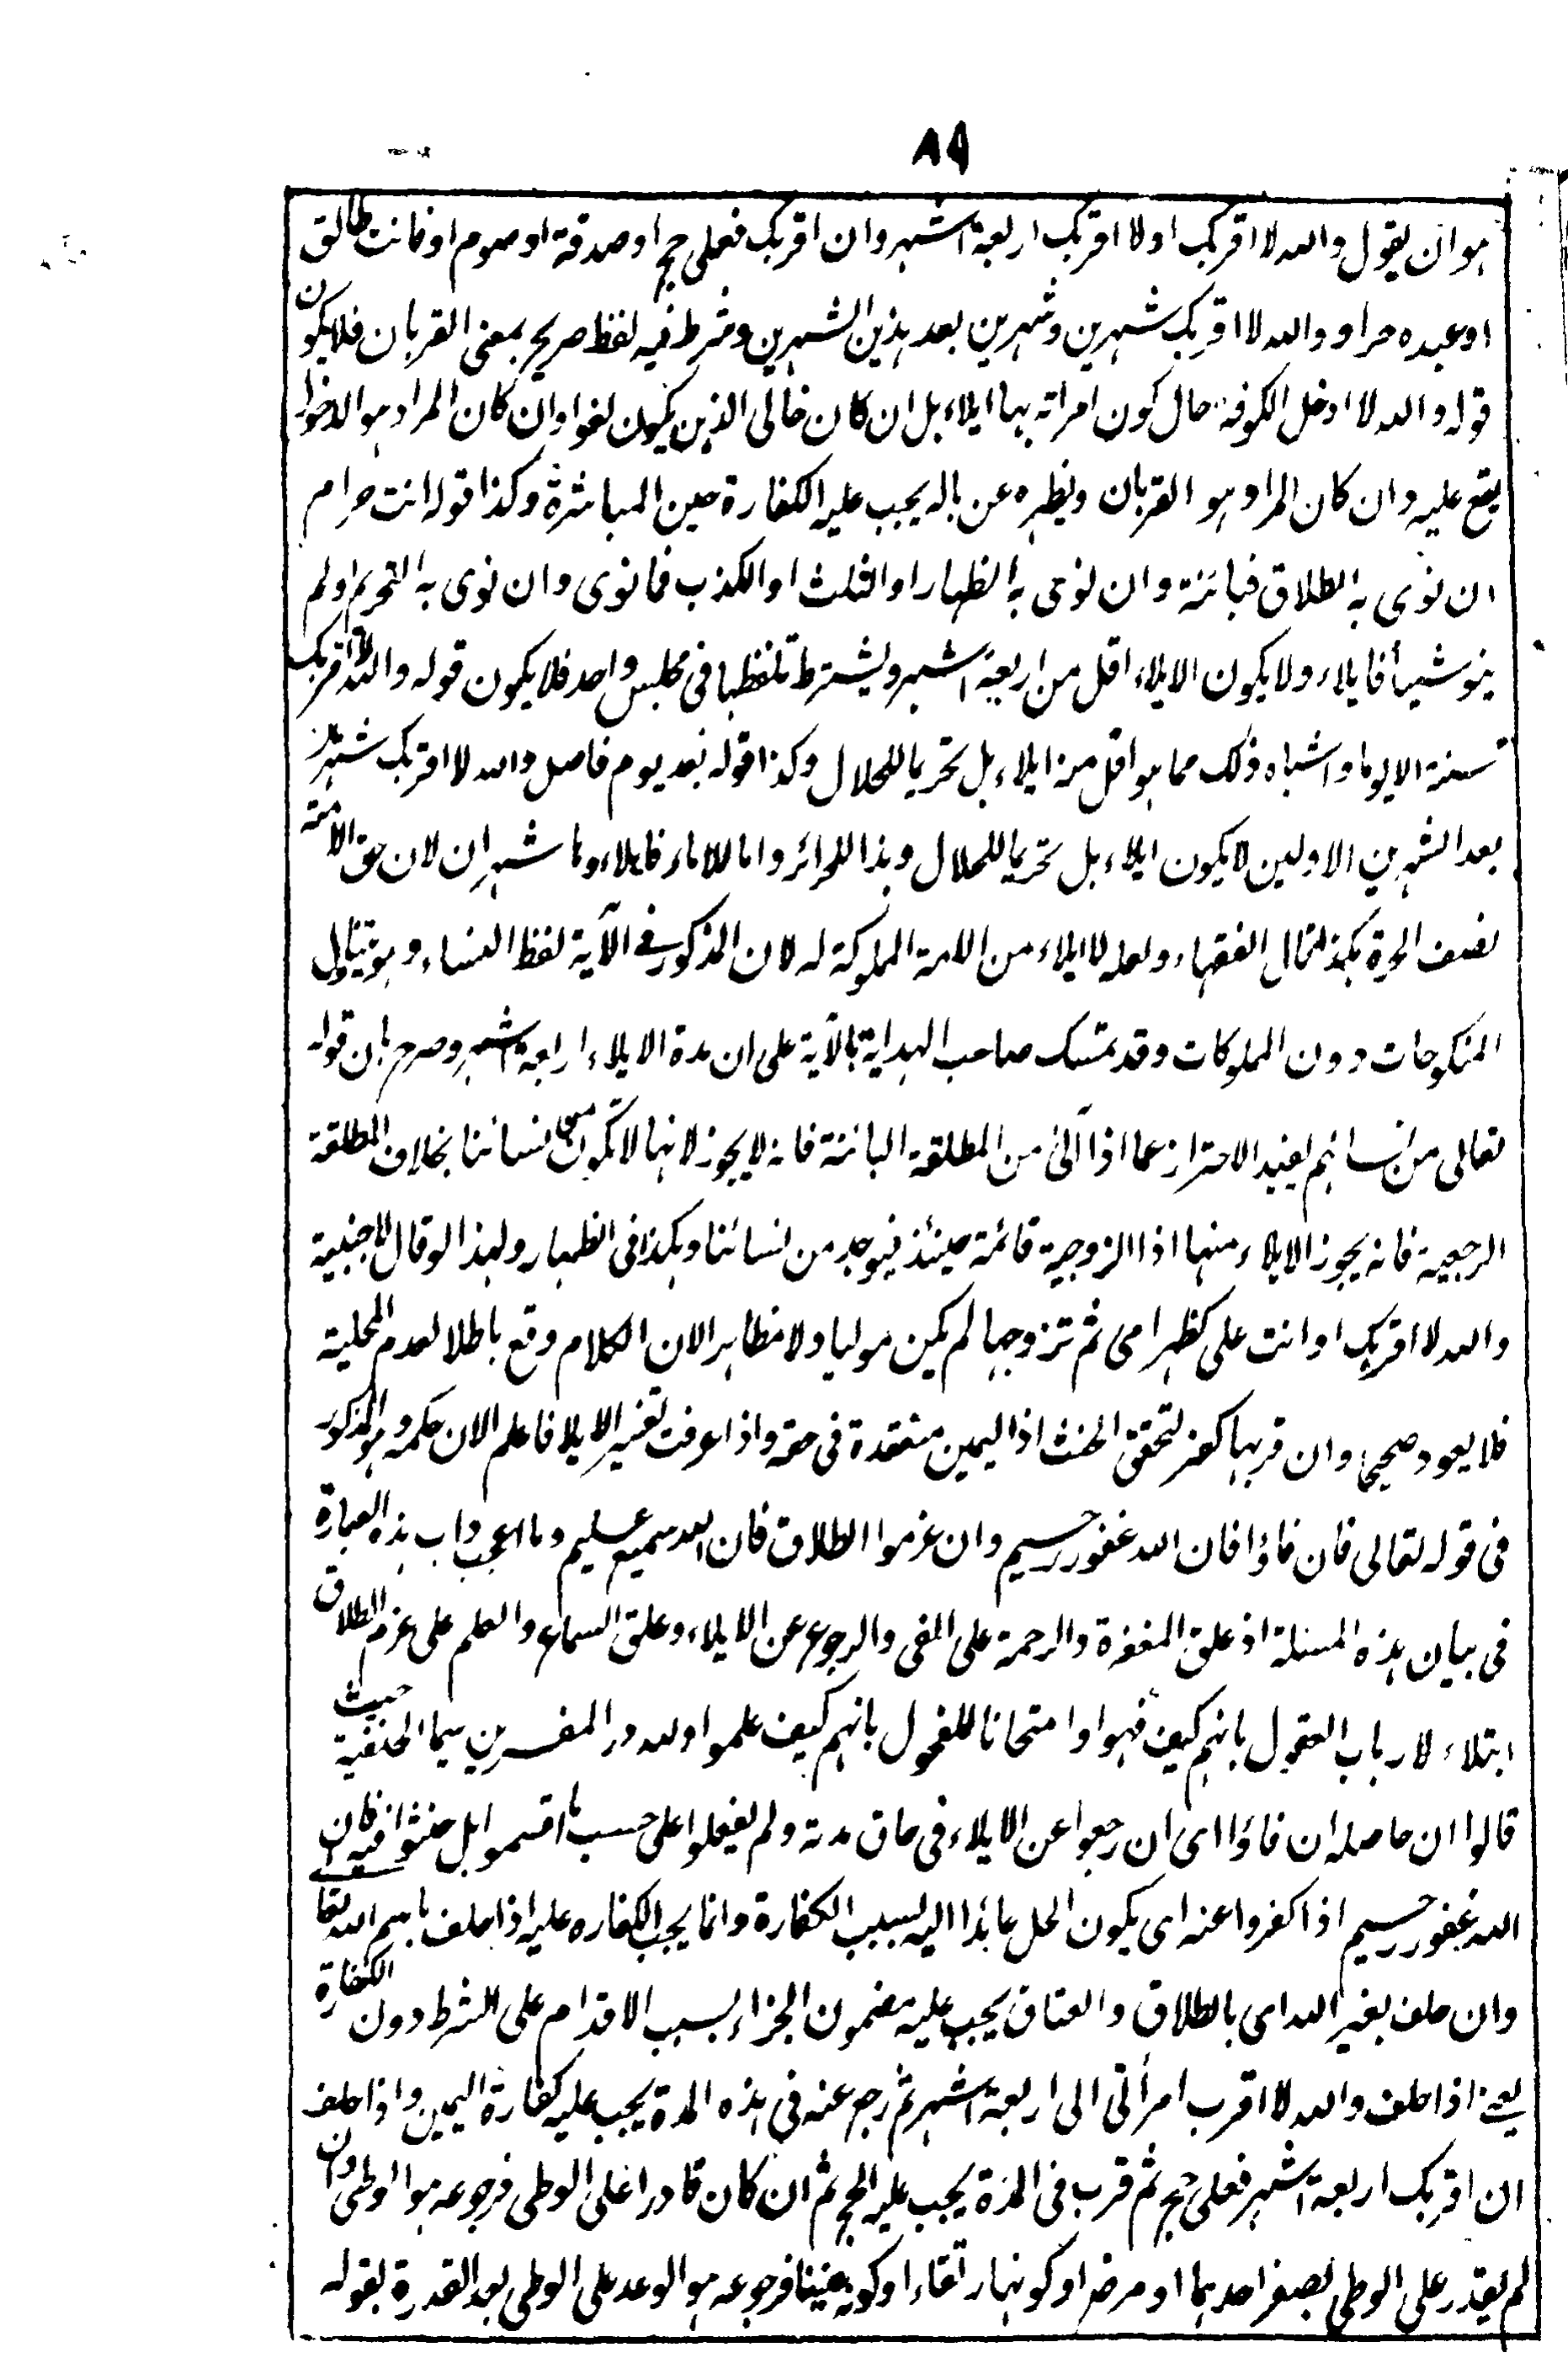 ٨٩
هو ان يقول والله لا اقربك او لا اقربك اربعة اشهر وان اقربك فعلى حج او صدقة او صوم او فانت طالق
او عبده حر او والله لا اقربك شهرين وشهرين بعد هذين الشهرين وشرط فيه لفظ صريح بمعنى القربان فلا يكون
قوله والله لا ادخل الكوفة حال كون امراته بها ايلاء بل ان كان خالى الذهن يكون لغوا وان كان المراد هو الدخول
يقع عليه وان كان المراد هو القربان ونظيره عن باله يجب عليه الكفارة حين المباشرة وكذا قوله انت حرام
ان نوى به الطلاق فبائنة وان نوى به الظهار او الثلث او الكذب فما نوى وان نوى به التحريم او لم
ينو شيأ فايلاء ولا يكون الايلاء اقل من اربعة اشهر ويشترط تلفظها فى مجلس واحد فلا يكون قوله والله لا اقربك
سنة الا يوما واشباه ذلك مما هو اقل من ايلاء بل تحريما للحلال وكذا قوله بعد يوم فاصل والله لا اقربك شهرين
بعد الشهرين الاولين لا يكون ايلاء بل تحريما للحلال وهذا للحرائر واما للاماء فايلاءوها شهران لان حق الامة
نصف الحرة هكذا قال الفقهاء ولعله لا ايلاء من الامة المملوكة له لان المذكور فى الآية لفظ النساء وهو يتناول
المنكوحات دون المملوكات وقد تمسك صاحب الهداية بالآية على ان مدة الايلاء اربعة اشهر وصرح بان قوله
تعالى من نسائهم يفيد الاحتراز عما اذا آلى من المطلقة البائنة فانه لا يجوز لانها لا تكون من نسائنا بخلاف المطلقة
الرجعية فانه يجوز الايلاء منها اذا الزوجية قائمة حينئذ فيوجد من نسائنا وهكذا فى الظهار ولهذا لو قال لاجنبية
والله لا اقربك او انت على كظهر امى ثم تزوجها لم يكن موليا ولا مظاهرا لان الكلام وقع باطلا لعدم المحلية
فلا يعود صحيحا وان قربها كفر لتحقق الحنث اذ اليمين منعقدة فى حقه واذا عرفت تفسير الايلا فاعلم الان حكمه وهو المذكور
فى قوله تعالى فان فاؤا فان الله غفور رحيم وان عزموا الطلاق فان الله سميع عليم وما اعجب داب هذه العبارة
فى بيان هذه المسئلة اذ علق المغفرة والرحمة على الفى والرجوع عن الايلاء وعلق السماع والعلم على عزم الطلاق
ابتلاء لارباب العقول بانهم كيف فهموا وامتحانا للفحول بانهم كيف علموا ولله در المفسرين سيما الحنفية حيث
قالوا ان حاصله ان فاؤا اى ان رجعوا عن الايلاء فى حاق مدته ولم يفعلوا على حسب ما اقسموا بل حنثوا فيه فان
الله غفور رحيم اذا كفروا عنه اى يكون الحل عائدا اليه بسبب الكفارة وانما يجب الكفاره عليه اذا حلف باسم الله تعا
وان حلف بغير الله اى بالطلاق والعتاق يجب عليه مضمون الجزاء بسبب الاقدام على الشرط دون الكفارة
يعنے اذا حلف والله لا اقرب امرأتى الى اربعة اشهر ثم رجع عنه فى هذه المدة يجب عليه كفارة اليمين واذا حلف
ان اقربك اربعة اشهر فعلى حج ثم قرب فى المدة يجب عليه الحج ثم ان كان قادرا على الوطى فرجوعه هو الوطى وان
لم يقدر على الوطى لصغر احدهما او مرض او كونها رتقاء او كونه عنينا فرجوعه هو الوعد على الوطى بعد القدرة بقوله